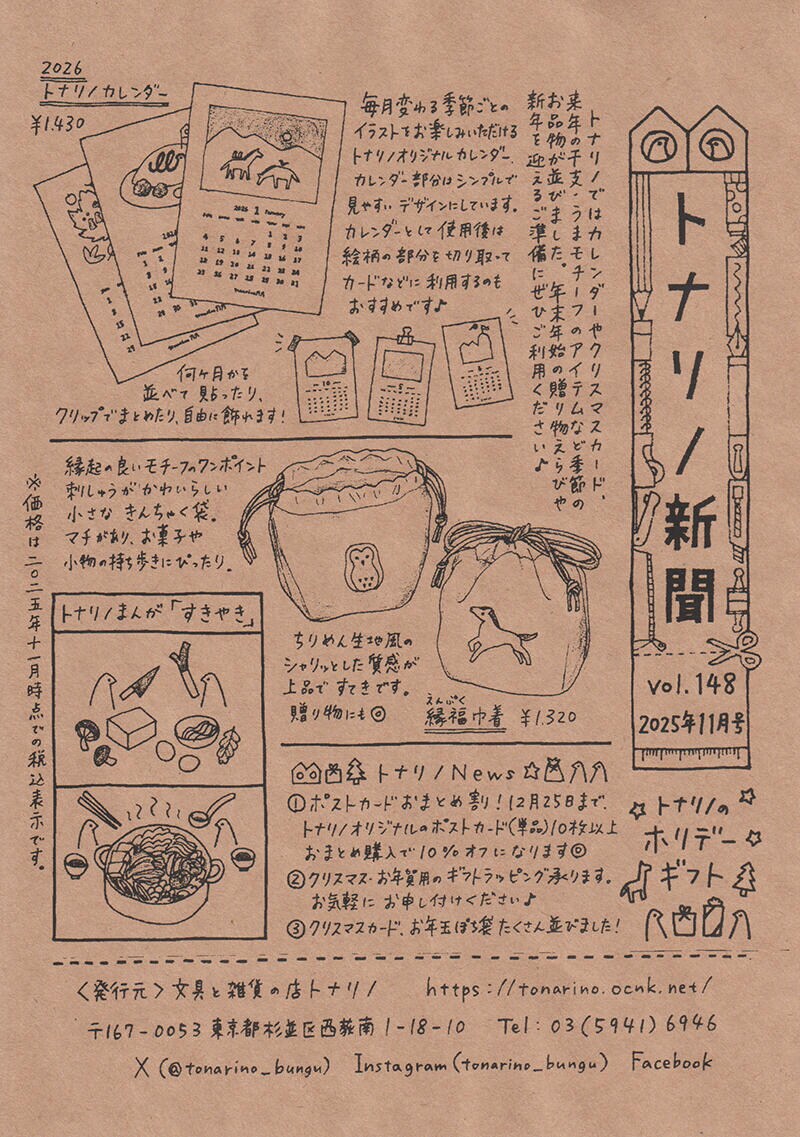 トナリノ新聞
vol.148
2025年11月号
トナリノではカレンダーやクリスマスカード、
来年の干支・うまモチーフのアイテムなど季節の
お品物が並びました。年末年始の贈り物えらびや
新年を迎えるご準備にぜひご利用ください♪
2026
トナリノカレンダー
¥1.430
毎月変わる季節ごとの
イラストをお楽しみいただける
トナリノオリジナルカレンダー、
カレンダー部分はシンプルで
見やすいデザインにしています。
カレンダーとして使用後は
絵柄の部分を切り取って
カードなどに利用するのも
おすすめです♪
2026 1 January
何ヶ月かを
並べて貼ったり、
クリップでまとめたり、自由に飾れます!
縁起の良いモチーフのワンポイント
刺しゅうがかわいらしい
小さなきんちゃく袋。
マチがあり、お菓子や
小物の持ち歩きにぴったり。
ちりめん生地風の
シャリッとした質感が
上品ですてきです。
贈り物にも◎
えんぷく
縁福巾着 ¥1.320
※価格は二〇二五年十一月時点での税込表示です。
トナリノまんが「すきやき」
トナリノNews
①ポストカードおまとめ割!12月25日まで、
トナリノオリジナルのポストカード(単品)10枚以上
おまとめ購入で10%オフになります◎
②クリスマス・お年賀用のギフトラッピング承ります。
お気軽にお申し付けください♪
③クリスマスカード、お年玉ぽち袋たくさん並びました!
トナリノの
ホリデー
ギフト
〈発行元〉文具と雑貨の店トナリノ https://tonarino.ocnk.net/
〒167-0053 東京都杉並区西荻南1-18-10 Tel: 03(5941)6946
X (@tonarino_bungu) Instagram (tonarino_bungu) Facebook